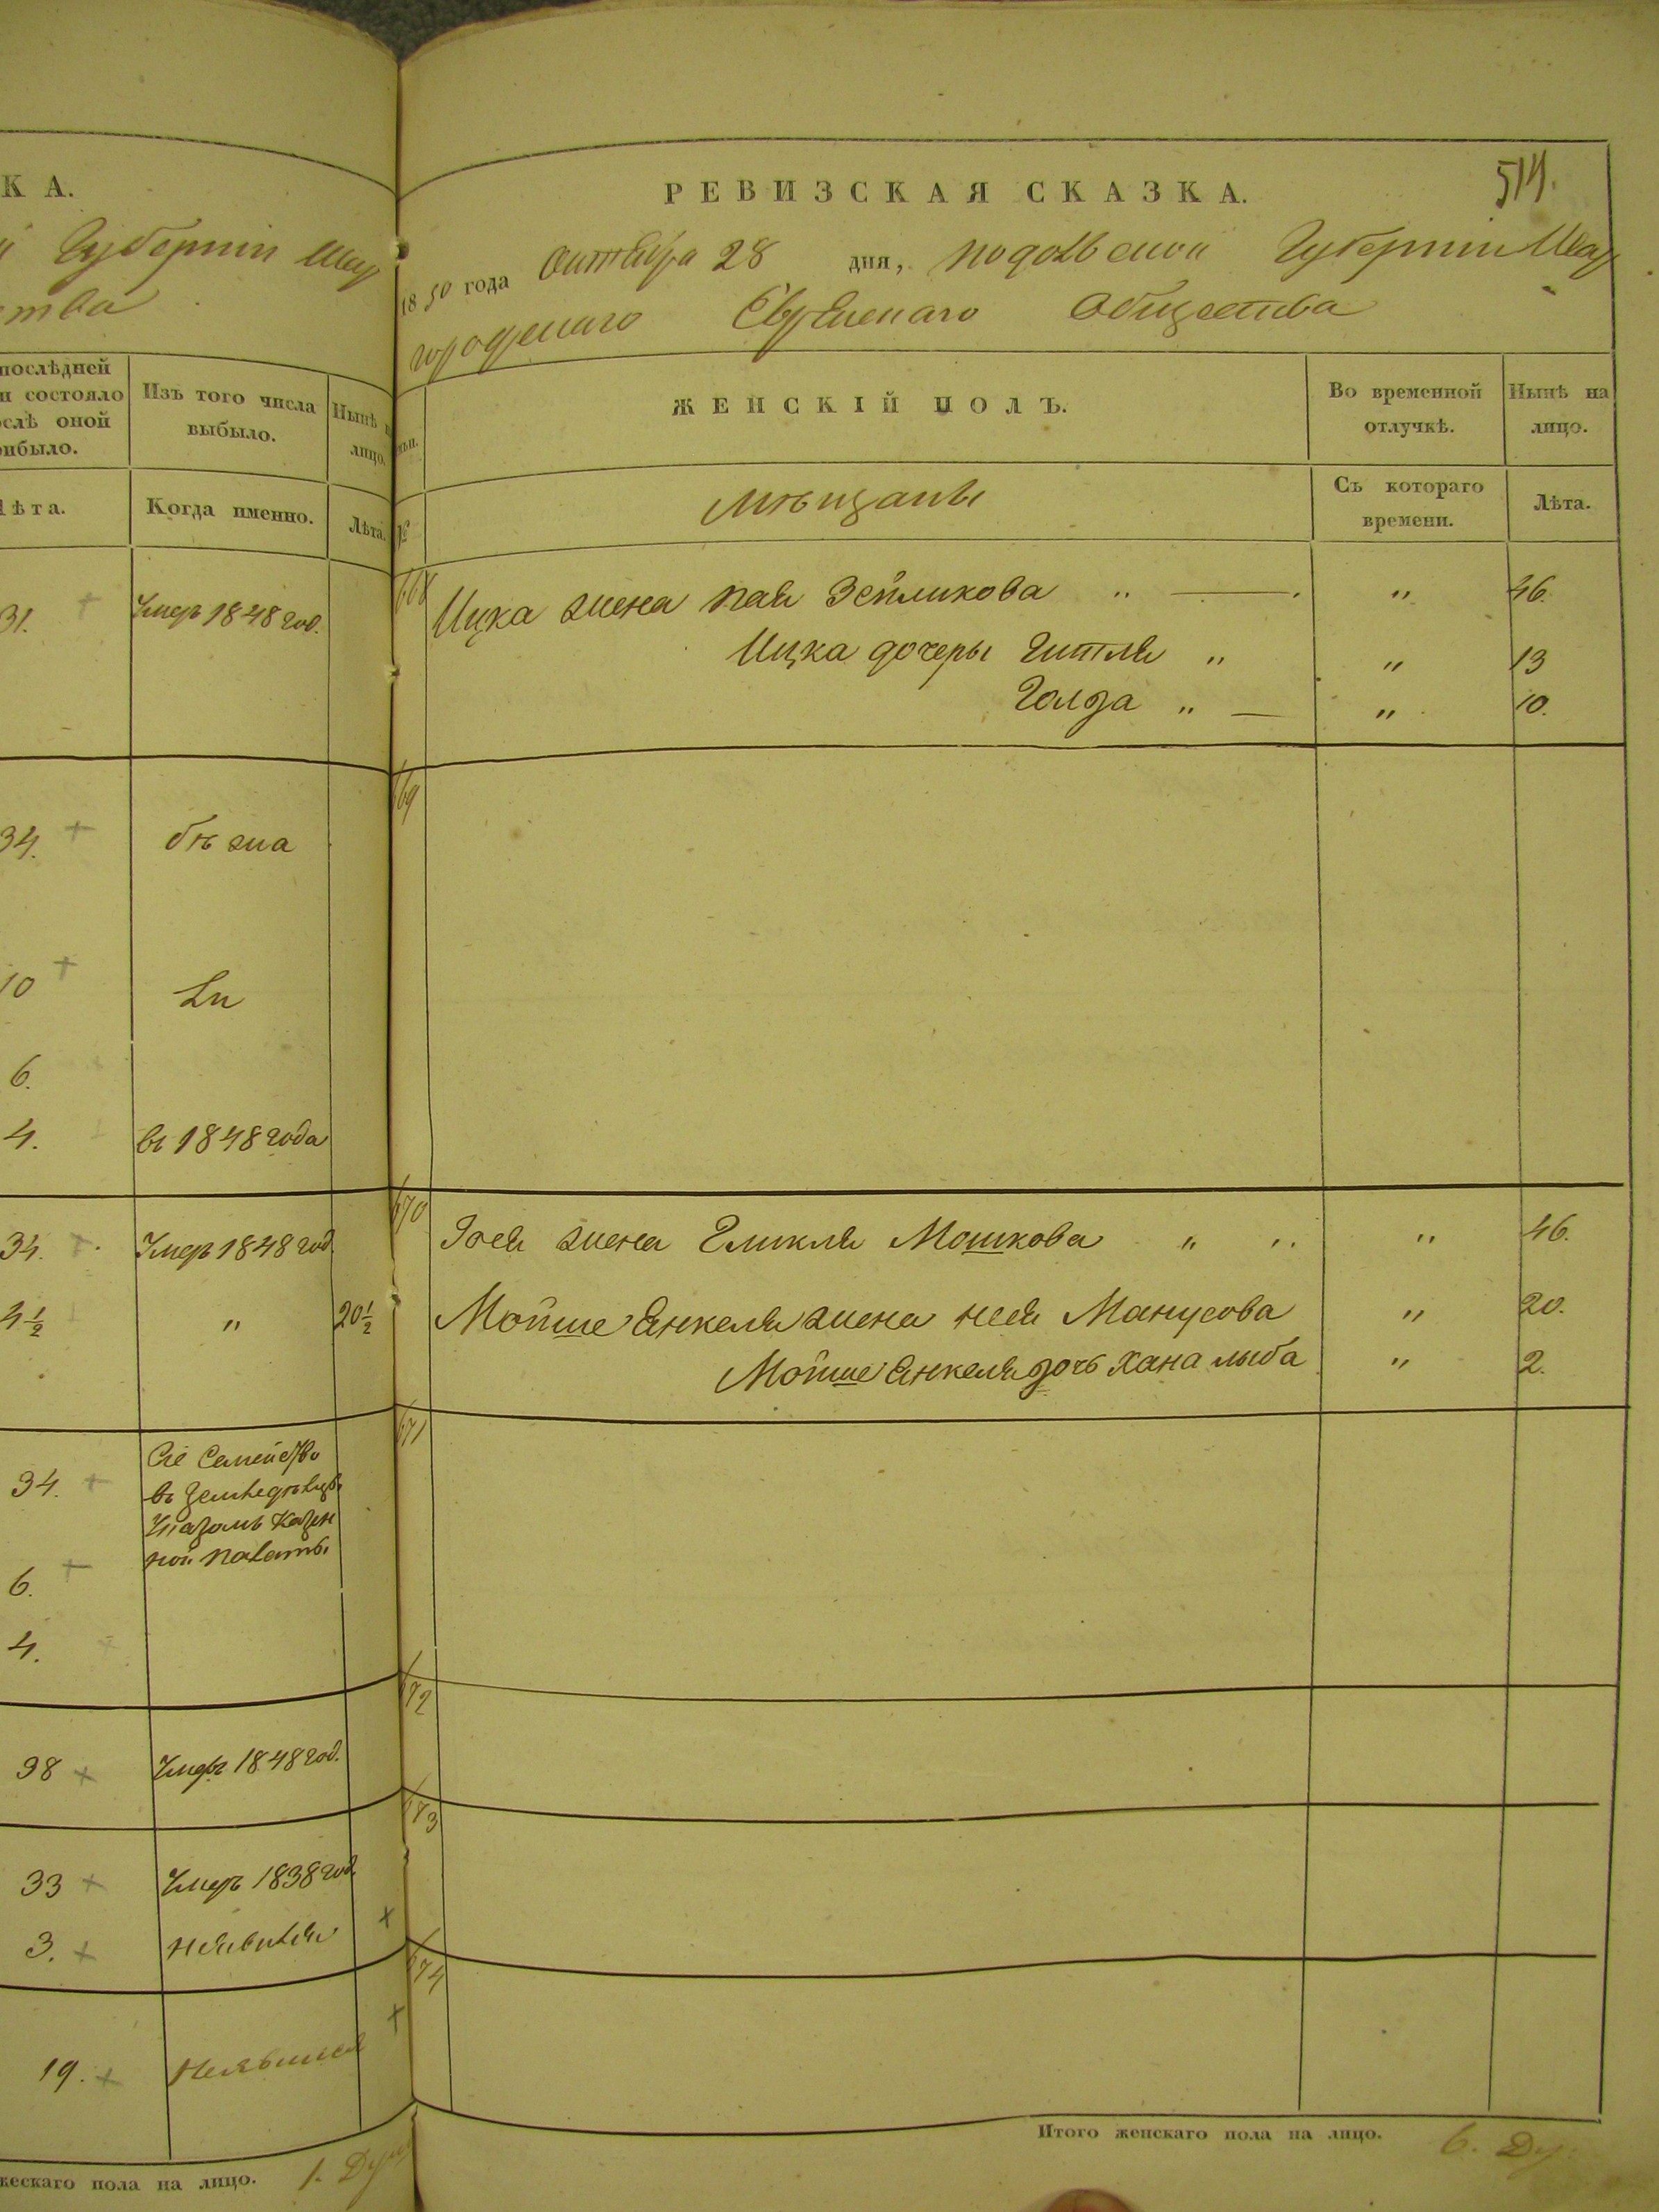 К А.
Губерніи Шар
ства
последней
и состояло
ослѣ оной
рибыло.
Изъ того числа
выбыло.
Нынѣ н
лицо.
Лѣта.
Когда именно.
Лѣта.
31. + Умеръ 1848 год.
34. + бѣжа
10 + Ли
6.
4. въ 1848 года
34. + Умеръ 1848 год
4½ " 20½
34. + Сіе Семейство
въ Земледѣльцы
Указомъ Казен
ной палаты
6. +
4.
38 + Умеръ 1848 год.
33 + Умеръ 1838 год
3. + неявился +
19. + Неявился +
жескаго пола на лицо. 1. Душ
514.
РЕВИЗСКАЯ СКАЗКА.
1850 года Октября 28 дня, подольской Губерніи Шар
городскаго Еврейскаго Общества
ЖЕНСКІЙ ПОЛЪ.
Во временной
отлучкѣ.
Нынѣ на
лицо.
№
мѣщане
Съ котораго
времени.
Лѣта.
668 Ицка жена пая Зейликова " — " 46.
Ицка дочеры Гитля " " 13
Голда " — " 10.
669
670 жена Гликля Мошкова " " " 46.
Мойше Янкеля жена нея Манусова " 20.
Мойше Янкеля дочь Хана лыба " 2.
671
672
673
674
Итого женскаго пола на лицо. 6. Ду